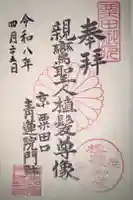 奉拝
親鸞聖人植髪尊像
京粟田口
青蓮院門跡
令和八年
四月二十五日